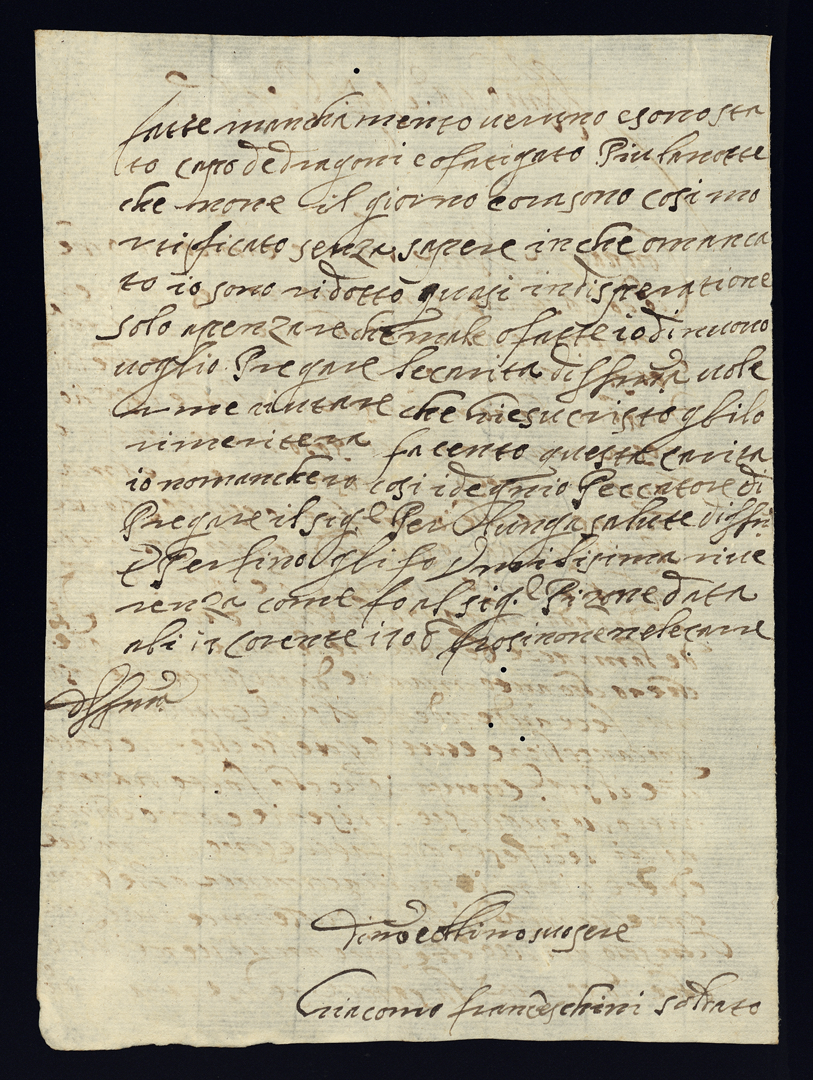 fatte mandiamento veruno e sono sta
to capo de dragoni e o fatigato Piu la notte
che none il giorno e ora sono cosi mo
rtificato senza sapere in che o manca
to io sono ridotto quasi in disperatione
solo a penzare che male o fatte io di nuovo
voglio Pregare le carita di ssria vole
r me aiutare che Giesu cristo glilo
rimeritera facento questa carita
io no manchero cosi idegnio Peccatore di
Pregare il sigl Per lunga salute di ssri
e Per fino gli fo Umilisima rive
renza come fo al sig.l Pizone data
ali 12 corente 1708 frosinone nele care
di ssria
umo suo sere
Giacomo franceschini soldato